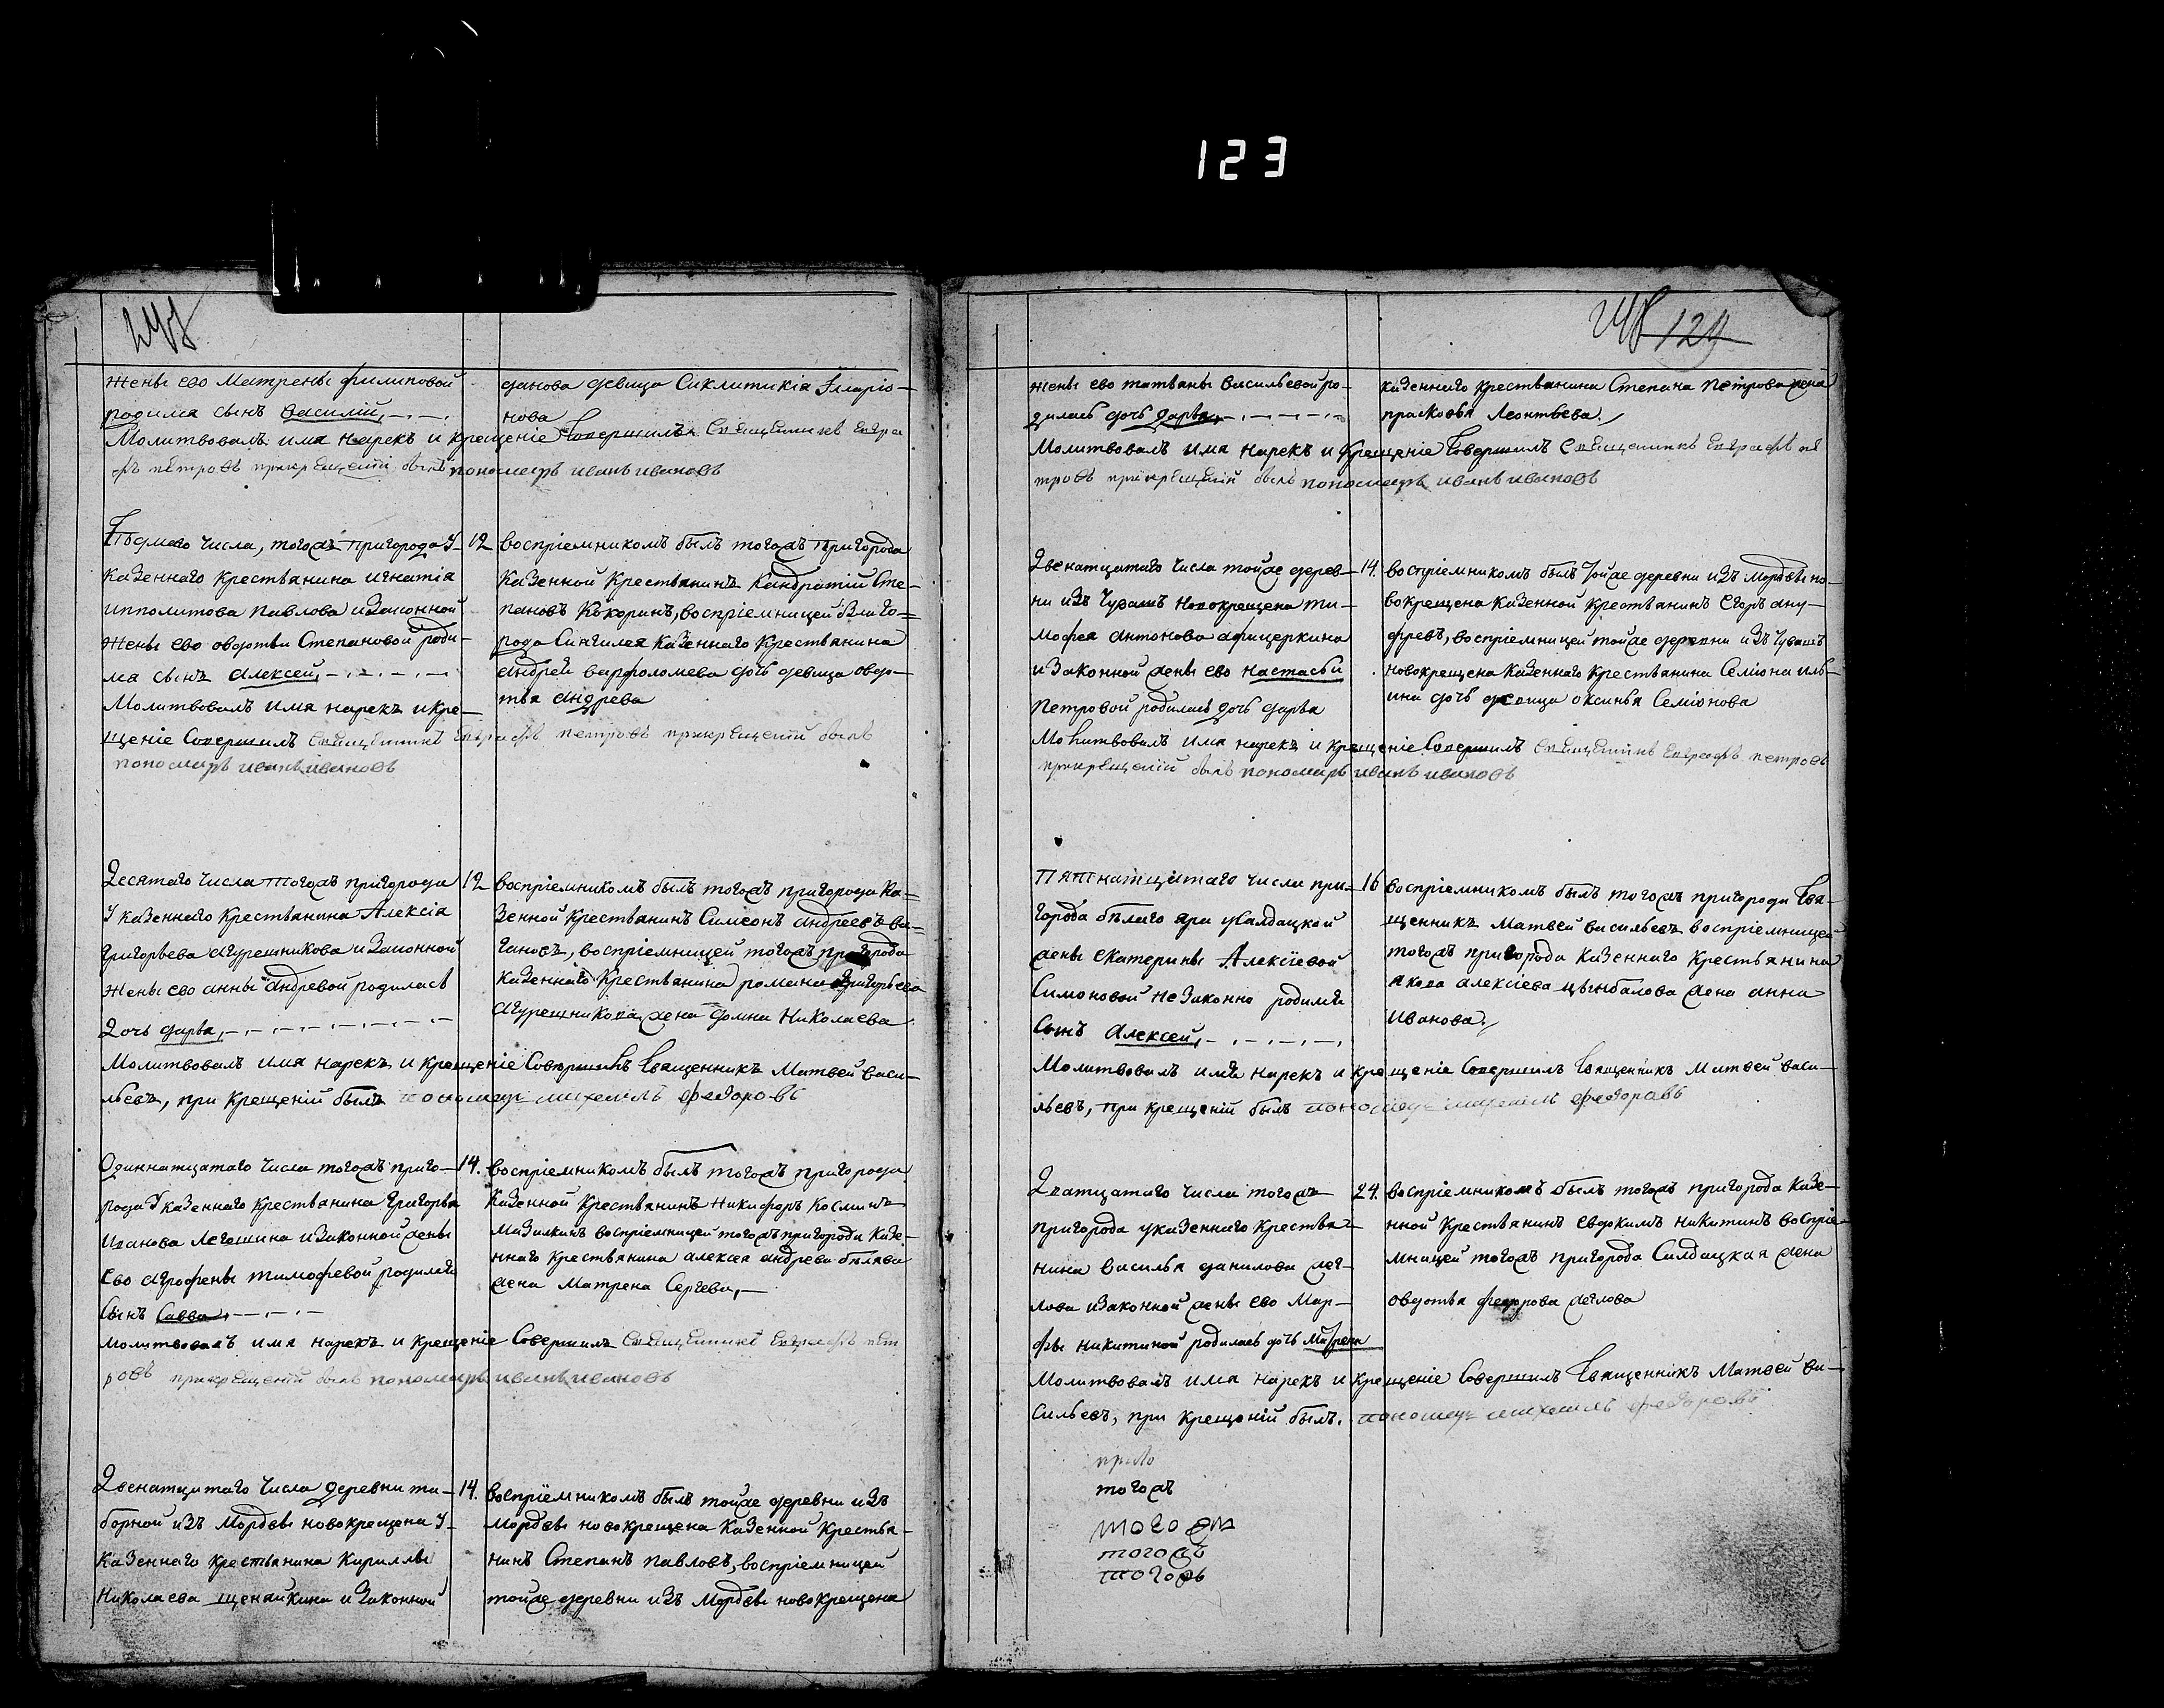 123
жены ево Матрены филиповой
родился сынъ Василій,
данова девица Сиклитикія Іларіо-
нова
Молитвовалъ имя нарекъ и крещеніе Совершилъ Священникъ Евгра
фъ петровъ прикрещеніи былъ пономарь иванъ ивановъ
Седмаго числа, тогожъ пригорода У-
казеннаго крестьянина игнатія
ипполитова павлова изаконной
жены ево овдотьи Степановой роди-
лся сынъ Алексей,
12
воспріемникомъ былъ тогожъ пригорода
казенной крестьянинъ кандратій Сте-
пановъ Кокоринъ, воспріемницей
рода Сингилея казеннаго крестьянина
андрея варфоломева дочь девица овдо-
тья андрева
Молитвовалъ имя нарекъ и кре-
щеніе Совершилъ Священникъ Евграфъ петровъ прикрещеніи былъ
пономарь иванъ ивановъ
Десятаго числа тогожъ пригорода
У казеннаго крестьянина Алексія
григорьева Агурешникова изаконной
жены ево анны андревой родилась
дочь дарья,
12
воспріемникомъ былъ тогожъ пригорода ка-
зенной крестьянинъ Симеонъ андреевъ ва-
гановъ, воспріемницей тогожъ пригорода
казеннаго крестьянина романа григорьева
агурешникова жена домна Николаева
Молитвовалъ имя нарекъ и крещеніе Совершилъ Священникъ Матвей васи-
льевъ, при крещеніи былъ пономарь михаилъ федоровъ
Одиннатцатаго числа тогожъ приго-
рода У казеннаго крестьянина григорья
Иванова Легошина изаконной жены
Ево агрофены тимофевой родился
сынъ Савва,
14.
воспріемникомъ былъ тогожъ пригорода
казенной крестьянинъ Никифоръ Косминъ
мазилкинъ воспріемницей тогожъ пригорода казе-
ннаго крестьянина алексея андрева беляева
жена Матрена Сергева,
Молитвовалъ имя нарекъ и крещеніе Совершилъ Священникъ Евграфъ пет
ровъ прикрещеніи былъ пономарь иванъ ивановъ
Двенатцатаго числа деревни та-
борной изъ Мордвы новокрещена У-
казеннаго крестьянина Кириллы
Николаева щенайкина изаконной
14.
воспріемникомъ былъ тойже деревни изъ
мордвы новокрещена казенной крестья-
нинъ Степанъ павловъ, воспріемницей
тойже деревни изъ Мордвы новокрещена
124
жены ево татьяны Васильевой ро-
дилась дочь дарья,
казеннаго крестьянина Степана петрова жена
прасковья Леонтьева.
Молитвовалъ имя нарекъ и крещеніе Совершилъ Священникъ Евграфъ пе
тровъ прикрещеніи былъ пономарь иванъ ивановъ
Двенатцатаго числа тойже дерев-
ни изъ Чувашъ новокрещена ти-
мофея антонова афицеркина
изаконной жены ево настасьи
петровой родилась дочь дарья
14.
воспріемникомъ былъ тойже деревни изъ мордвы но-
вокрещена казенной крестьянинъ Егоръ ану-
фревъ, воспріемницей тойже деревни изъ чувашъ
новокрещена казеннаго крестьянина Семіона иль-
ина дочь девица оксинья Семіонова
Молитвовалъ имя нарекъ и крещеніе Совершилъ Священникъ Евграфъ петровъ
прикрещеніи былъ пономарь иванъ ивановъ
Пятнатцатаго числа при-
города белаго яра усалдацкой
жены екатерины Алексіевой
Симоновой незаконно родился
сынъ Алексей,
16
воспріемникомъ былъ тогожъ пригорода Свя-
щенникъ Матвей васильевъ воспріемницей
тогожъ пригорода казеннаго крестьянина
якова алексіева цынбалова жена анна
иванова.
Молитвовалъ имя нарекъ и крещеніе Совершилъ Священникъ Матвей васи-
льевъ, при крещеніи былъ пономарь михаилъ федоравъ
Дватцатаго числа тогожъ
пригорода указеннаго крестья-
нина василья данилова жег-
лова изаконной жены ево Мар-
фы никитиной родилась дочь Матрена
24.
воспріемникомъ былъ тогожъ пригорода казе-
нной крестьянинъ евдокимъ никитинъ воспріе-
мницей тогожъ пригорода Салдацкая жена
овдотья федорова жеглова
Молитвовалъ имя нарекъ и крещеніе Совершилъ Священникъ Матвей ва-
сильевъ, при крещеніи былъ. пономарь михаилъ федоровъ
тогожъ
тогожъ
тогожъ
тогожъ